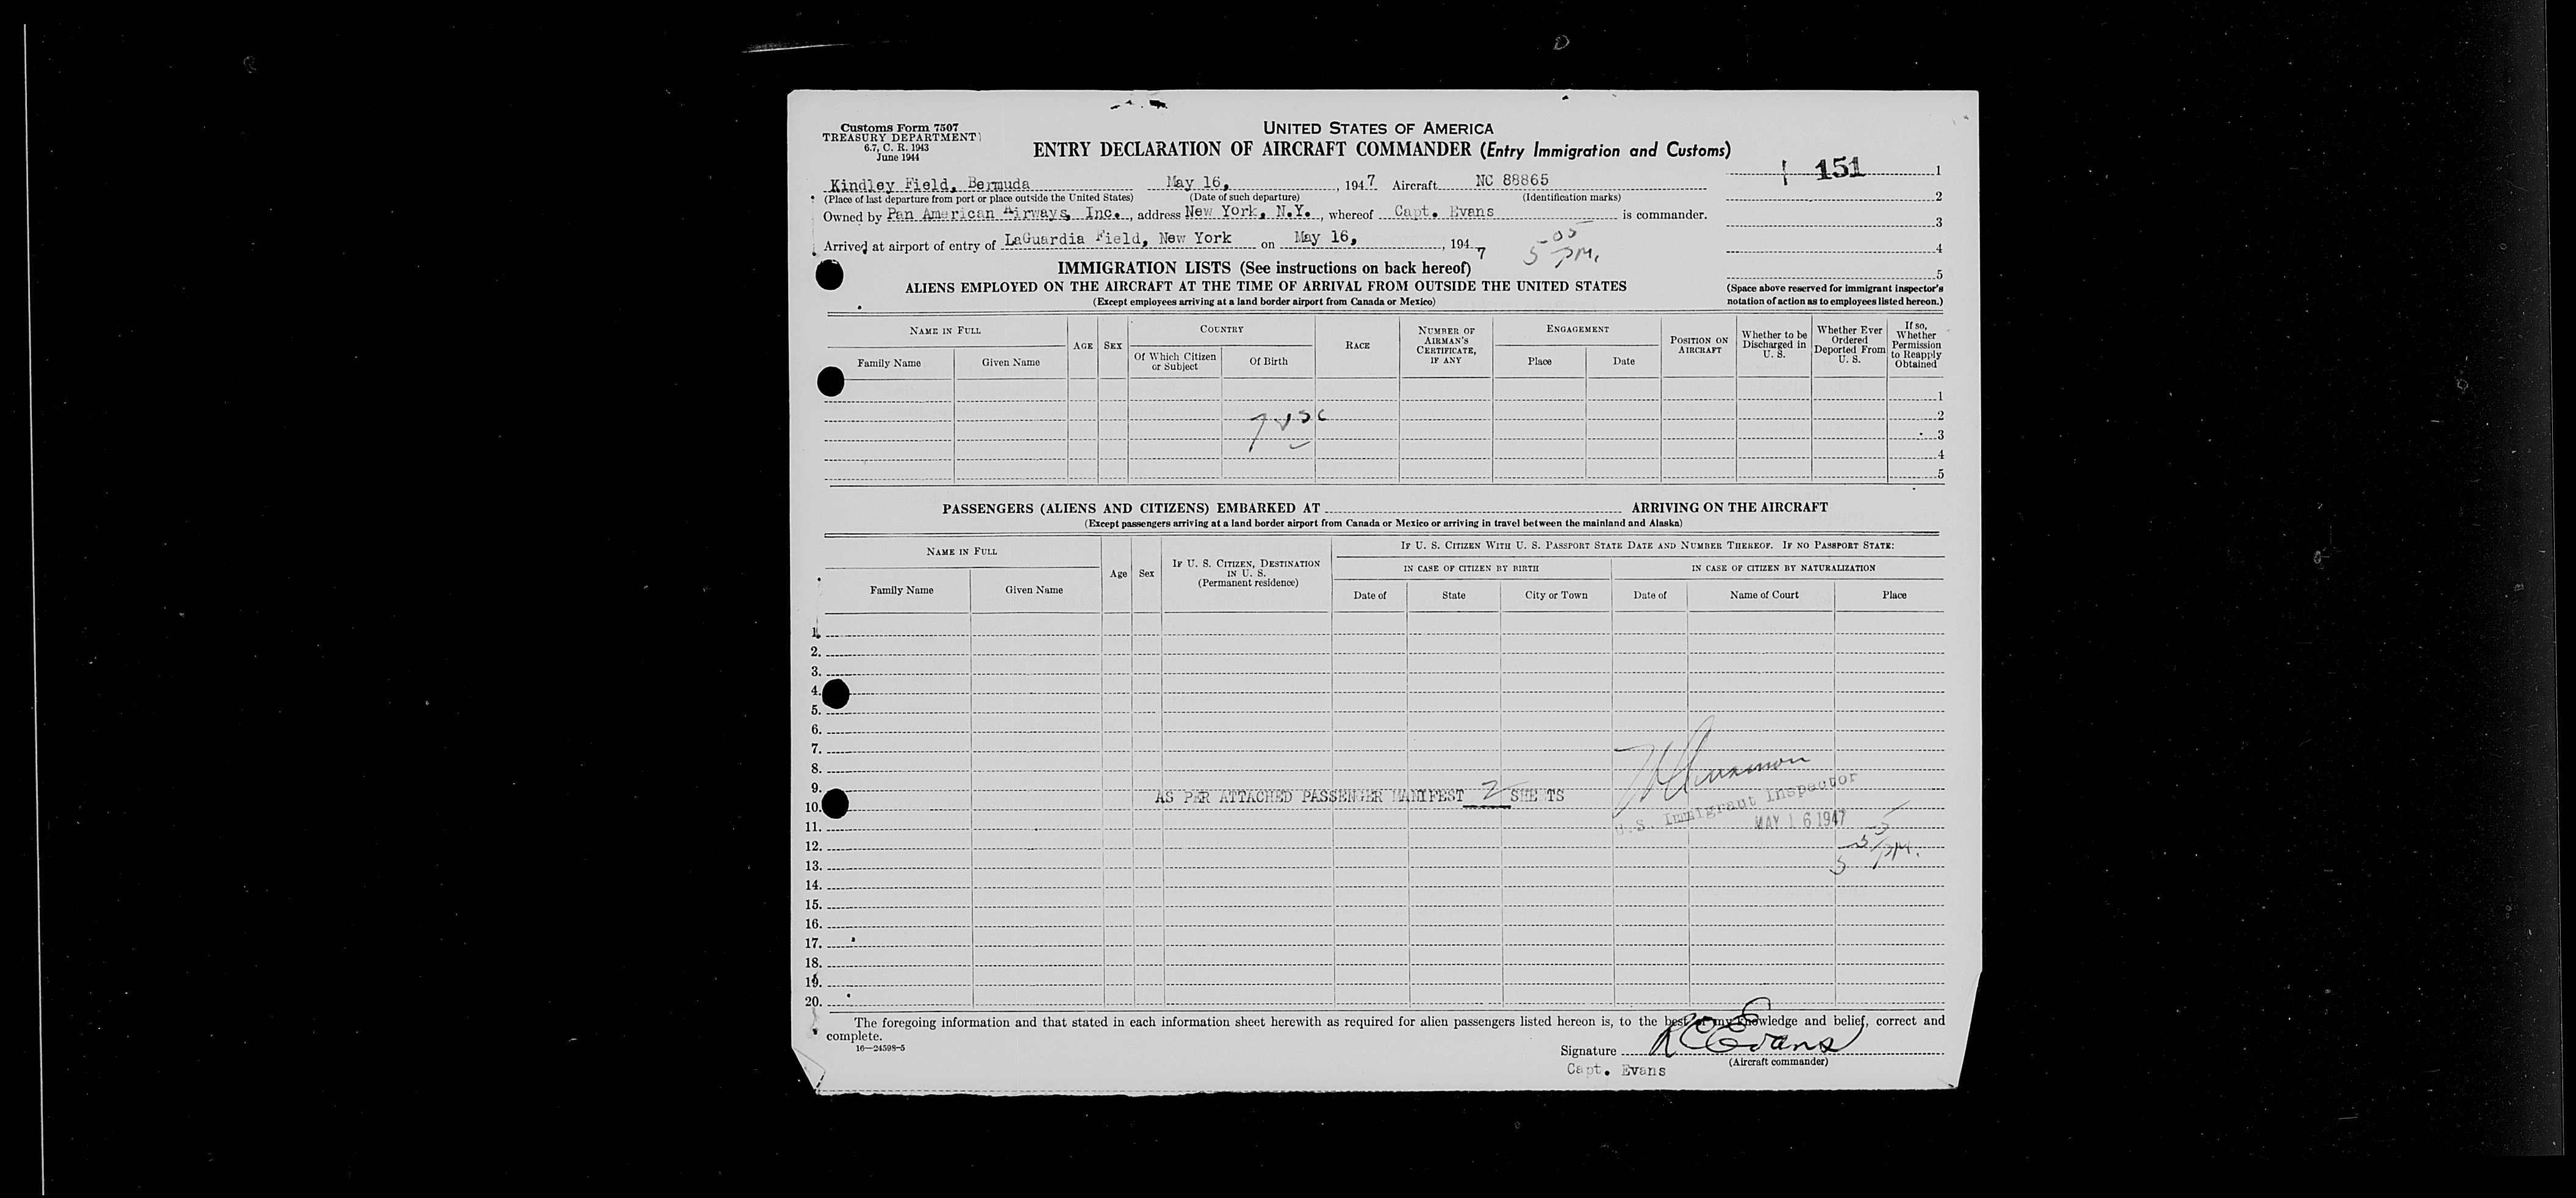 Customs Form 7507
TREASURY DEPARTMENT
6.7, C. R. 1943
June 1944
UNITED STATES OF AMERICA
ENTRY DECLARATION OF AIRCRAFT COMMANDER (Entry Immigration and Customs)
151 1
2
3
4
5
Kindley Field, Bermuda May 16, , 1947 Aircraft NC 88865
(Place of last departure from port or place outside the United States) (Date of such departure) (Identification marks)
Owned by Pan American Airways, Inc. , address New York, N.Y. , whereof Capt. Evans is commander.
Arrived at airport of entry of LaGuardia Field, New York on May 16, , 1947 5 05 PM.
IMMIGRATION LISTS (See instructions on back hereof)
ALIENS EMPLOYED ON THE AIRCRAFT AT THE TIME OF ARRIVAL FROM OUTSIDE THE UNITED STATES
(Except employees arriving at a land border airport from Canada or Mexico)
(Space above reserved for immigrant inspector's
notation of action as to employees listed hereon.)
NAME IN FULL
Family Name Given Name
AGE SEX
COUNTRY
Of Which Citizen or Subject Of Birth
RACE
NUMBER OF AIRMAN'S CERTIFICATE, IF ANY
ENGAGEMENT
Place Date
POSITION ON AIRCRAFT
Whether to be Discharged in U. S.
Whether Ever Ordered Deported From U. S.
If so, Whether Permission to Reapply Obtained
1
2
3
4
5
7 USC
PASSENGERS (ALIENS AND CITIZENS) EMBARKED AT ARRIVING ON THE AIRCRAFT
(Except passengers arriving at a land border airport from Canada or Mexico or arriving in travel between the mainland and Alaska)
NAME IN FULL
Family Name Given Name
Age Sex
IF U. S. CITIZEN, DESTINATION IN U. S.
(Permanent residence)
IF U. S. CITIZEN WITH U. S. PASSPORT STATE DATE AND NUMBER THEREOF. IF NO PASSPORT STATE:
IN CASE OF CITIZEN BY BIRTH IN CASE OF CITIZEN BY NATURALIZATION
Date of State City or Town Date of Name of Court Place
1.
2.
3.
4.
5.
6.
7.
8.
9.
AS PER ATTACHED PASSENGER MANIFEST 2 SHEETS
10.
U.S. Immigrant Inspector
11.
MAY 16 1947
12.
13.
14.
15.
16.
17.
18.
19.
20.
The foregoing information and that stated in each information sheet herewith as required for alien passengers listed hereon is, to the best of my knowledge and belief, correct and
complete.
16—24598-5
Signature R C Evans
(Aircraft commander)
Capt. Evans